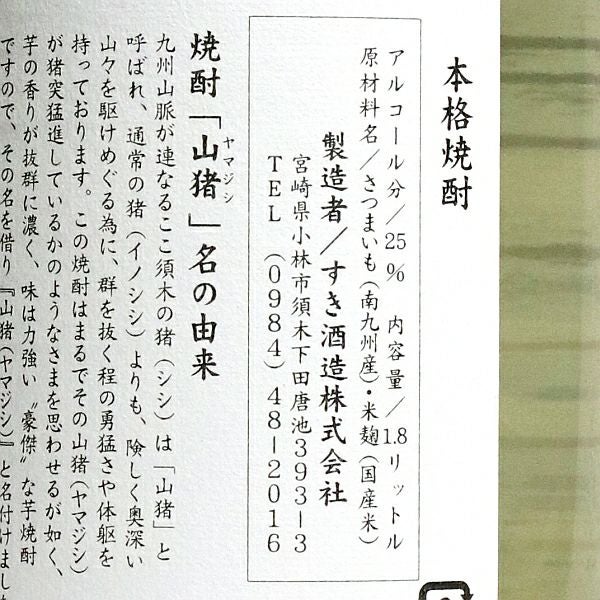 本格焼酎
アルコール分／25％　内容量／1.8リットル
原材料名／さつまいも(南九州産)・米麹(国産米)
製造者／すき酒造株式会社
宮崎県小林市須木下田唐池393-3
TEL (0984) 48-2016
焼酎「山猪」名の由来
ヤマジシ
九州山脈が連なるここ須木の猪(シシ)は「山猪」と
呼ばれ、通常の猪(イノシシ)よりも、険しく奥深い
山々を駆けめぐる為に、群を抜く程の勇猛さや体躯を
持っております。この焼酎はまるでその山猪(ヤマジシ)
が猪突猛進しているかのようなさまを思わせるが如く、
芋の香りが抜群に濃く、味は力強い〝豪傑〟な芋焼酎
ですので、その名を借り『山猪(ヤマジシ)』と名付けまし